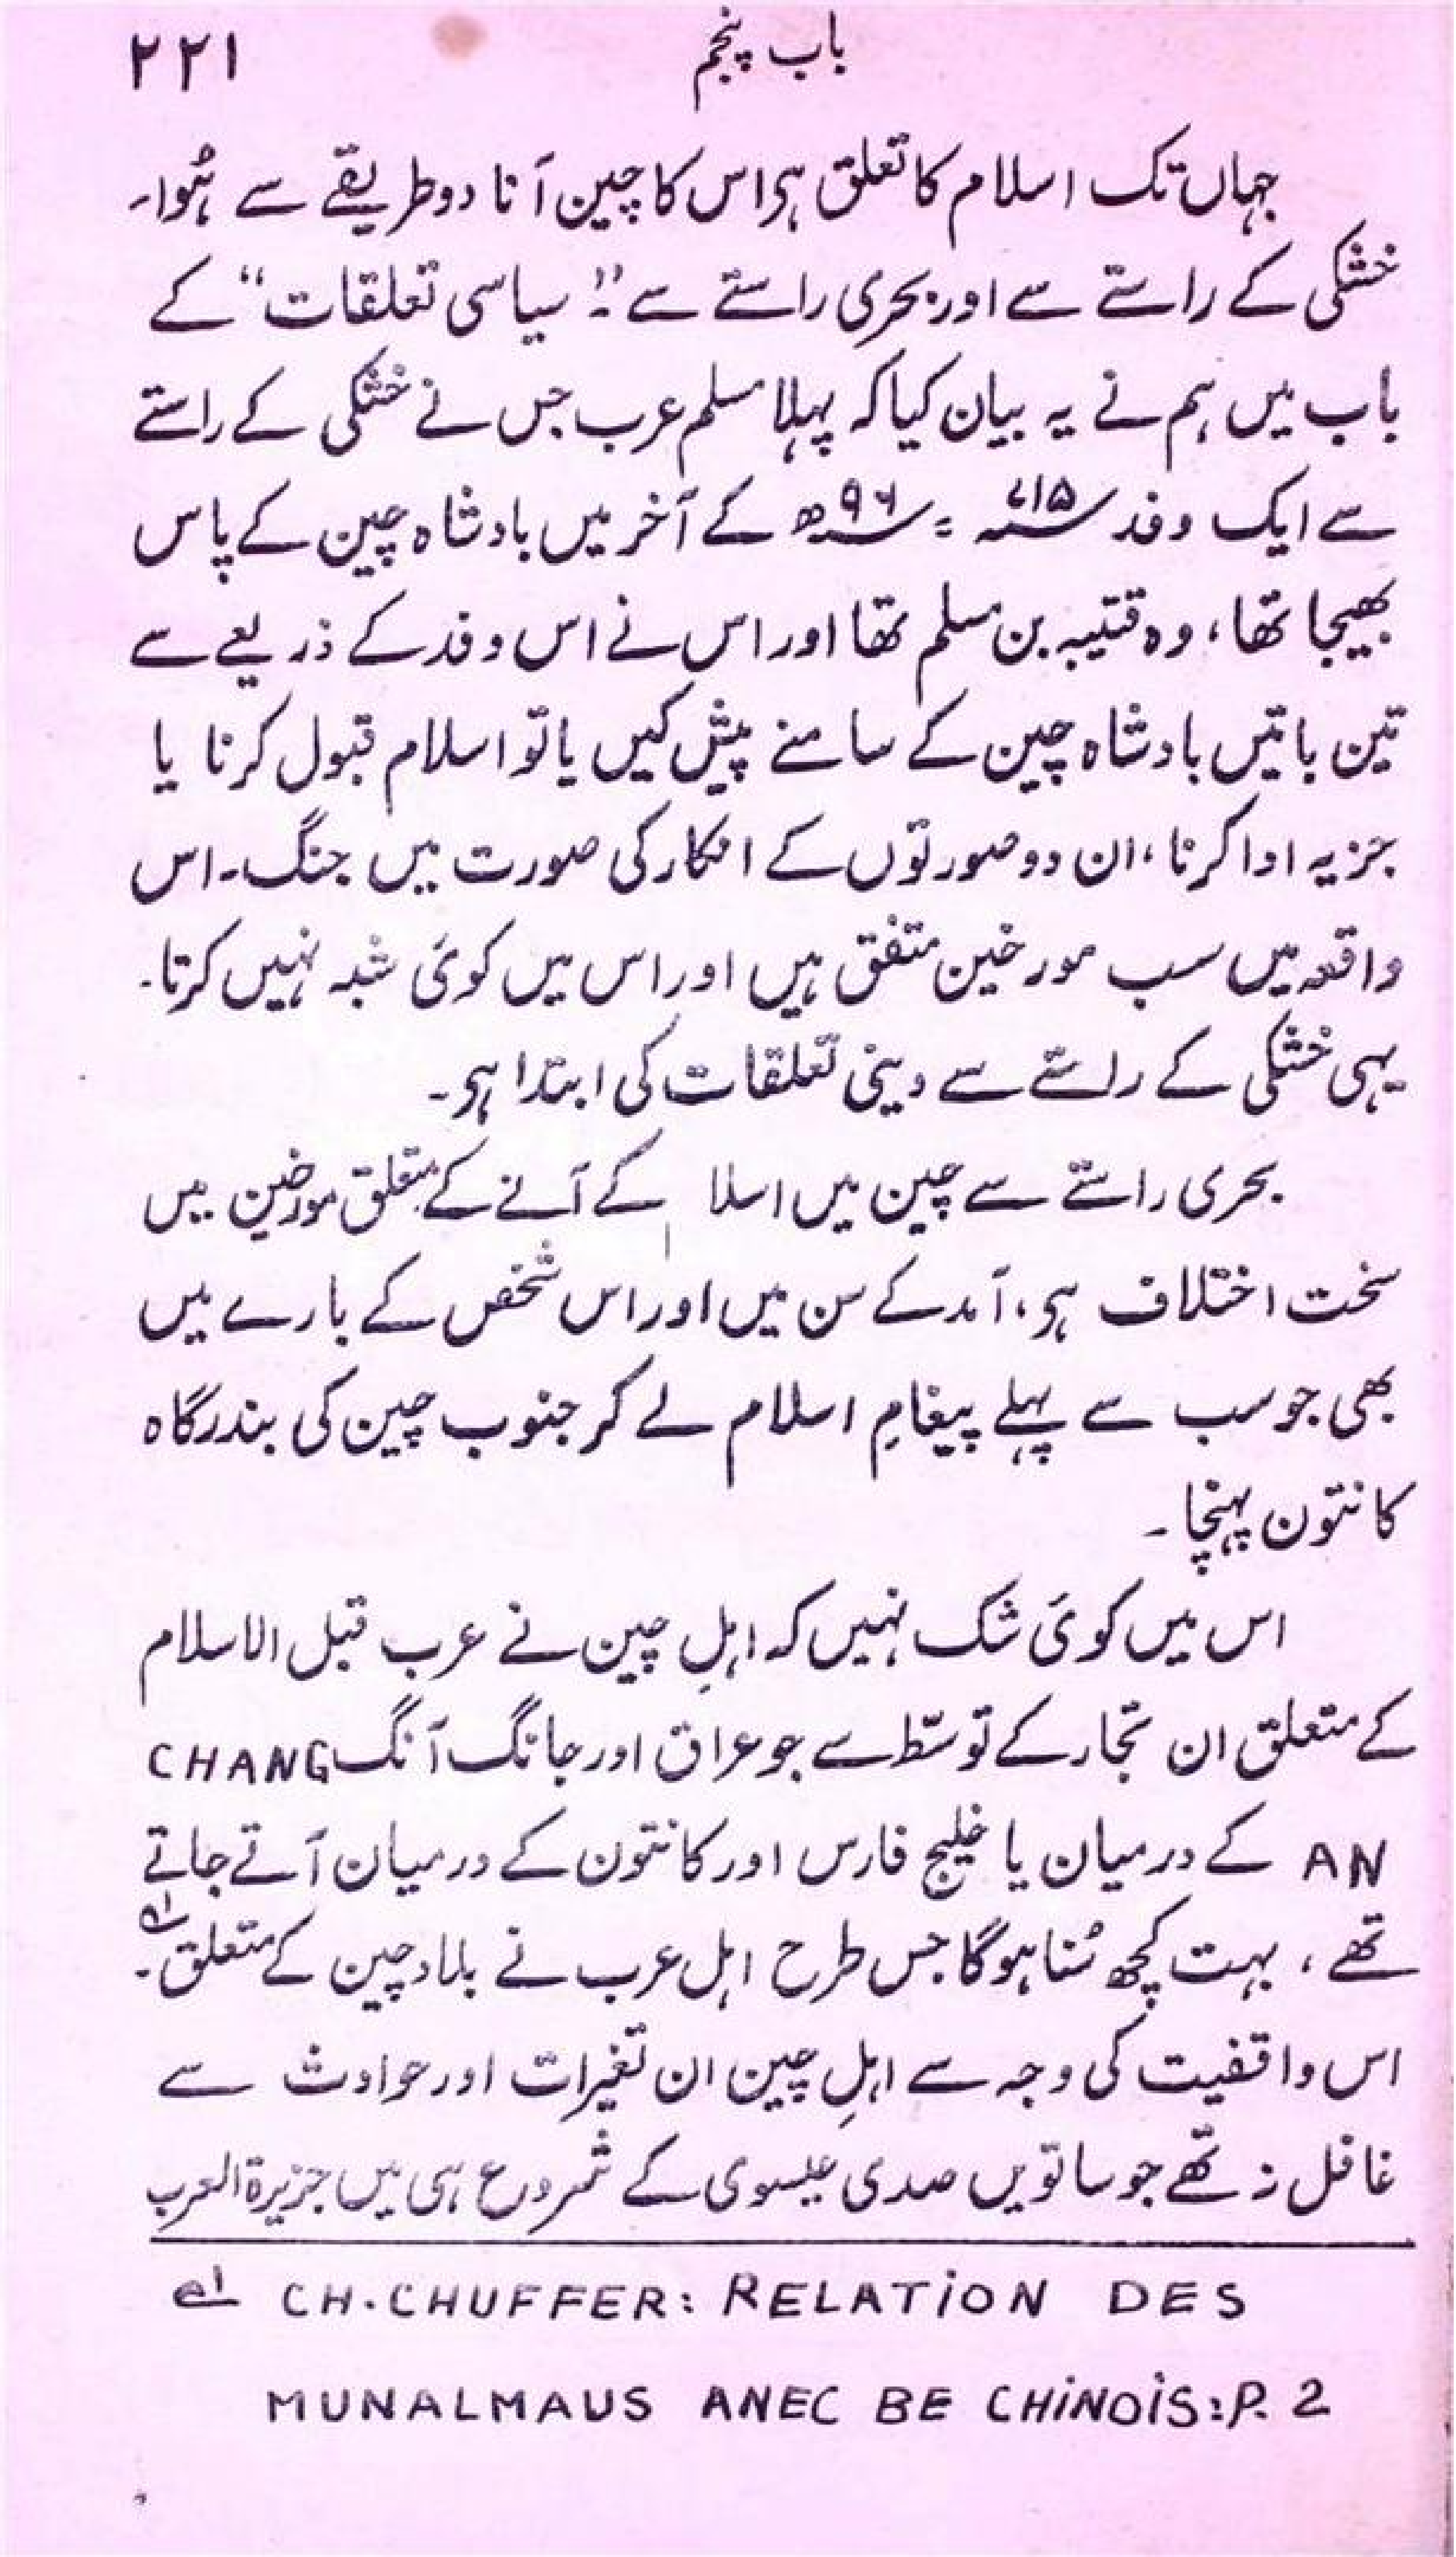 باب پنجم ۲۲۱
جہاں تک اسلام کا تعلق ہی اس کا چین آنا دو طریقے سے ہُوا۔
خشکی کے راستے سے اور بحری راستے سے۔ "سیاسی تعلقات" کے
باب میں ہم نے یہ بیان کیا کہ پہلا مسلم عرب جس نے خشکی کے راستے
سے ایک وفد ۷۱۵ء = ۹۶ھ کے آخر میں بادشاہ چین کے پاس
بھیجا تھا، وہ قتیبہ بن مسلم تھا اور اس نے اس وفد کے ذریعے سے
تین باتیں بادشاہ چین کے سامنے پیش کیں یا تو اسلام قبول کرنا یا
جزیہ ادا کرنا، ان دو صورتوں کے انکار کی صورت میں جنگ۔ اس
واقعہ میں سب مورخین متفق ہیں اور اس میں کوئی شبہ نہیں کرتا۔
یہی خشکی کے راستے سے دینی تعلقات کی ابتدا ہی۔
بحری راستے سے چین میں اسلا کے آنے کے متعلق مورخین میں
سخت اختلاف ہی، آمد کے سن میں اور اس شخص کے بارے میں
بھی جو سب سے پہلے پیغامِ اسلام لے کر جنوب چین کی بندرگاہ
کانتون پہنچا۔
اس میں کوئی شک نہیں کہ اہلِ چین نے عرب قبل الاسلام
کے متعلق ان تجار کے توسّط سے جو عراق اور جانگ آنگ CHANG
AN کے درمیان یا خلیج فارس اور کانتون کے درمیان آتے جاتے
تھے، بہت کچھ سُنا ہوگا جس طرح اہل عرب نے بلاد چین کے متعلق۔ ؎۱
اس واقفیت کی وجہ سے اہلِ چین ان تغیرات اور حوادث سے
غافل نہ تھے جو ساتویں صدی عیسوی کے شروع ہی میں جزیرۃ العرب
؎۱ CH. CHUFFER: RELATION DES
MUNALMAUS ANEC BE CHINOIS: P. 2